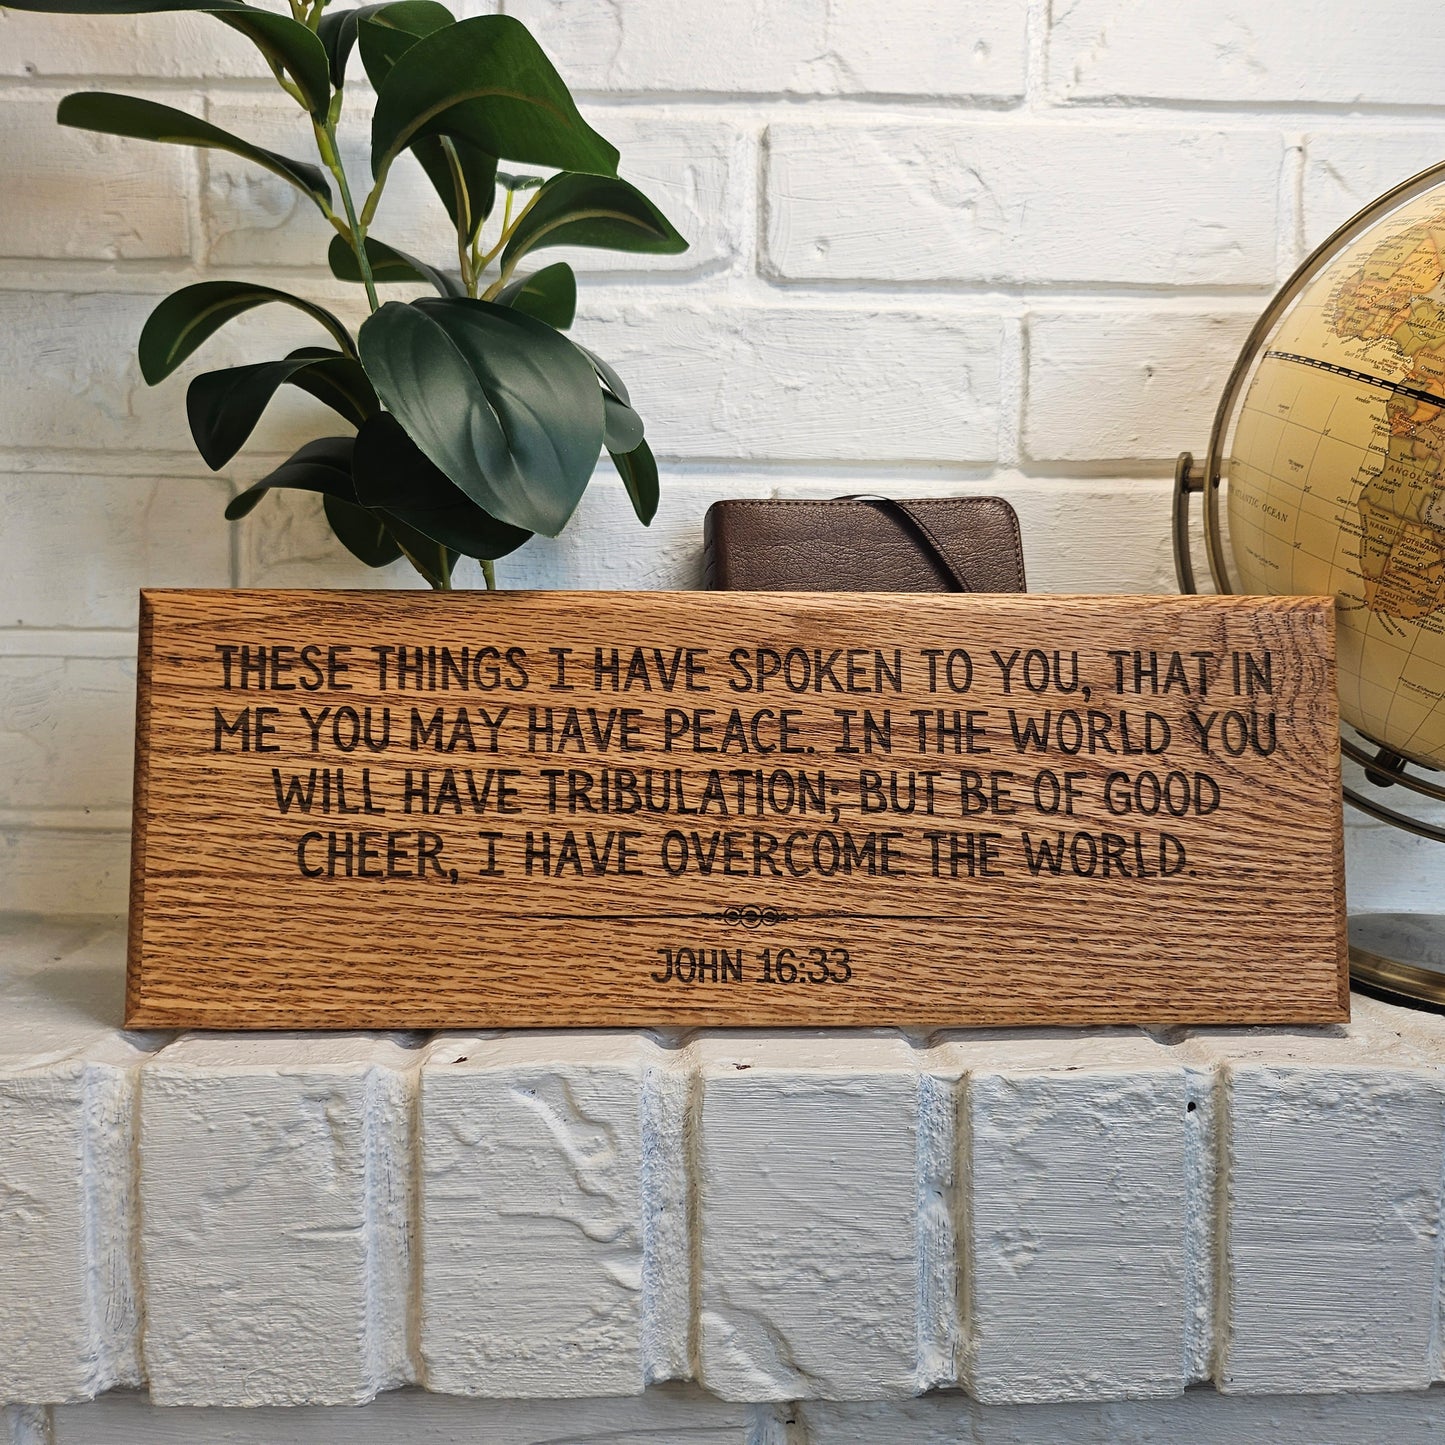 THESE THINGS I HAVE SPOKEN TO YOU, THAT IN
ME YOU MAY HAVE PEACE. IN THE WORLD YOU
WILL HAVE TRIBULATION; BUT BE OF GOOD
CHEER, I HAVE OVERCOME THE WORLD.
JOHN 16:33
ATLANTIC OCEAN
ANGOLA
NAMIBIA
BOTSWANA
SOUTH
AFRICA